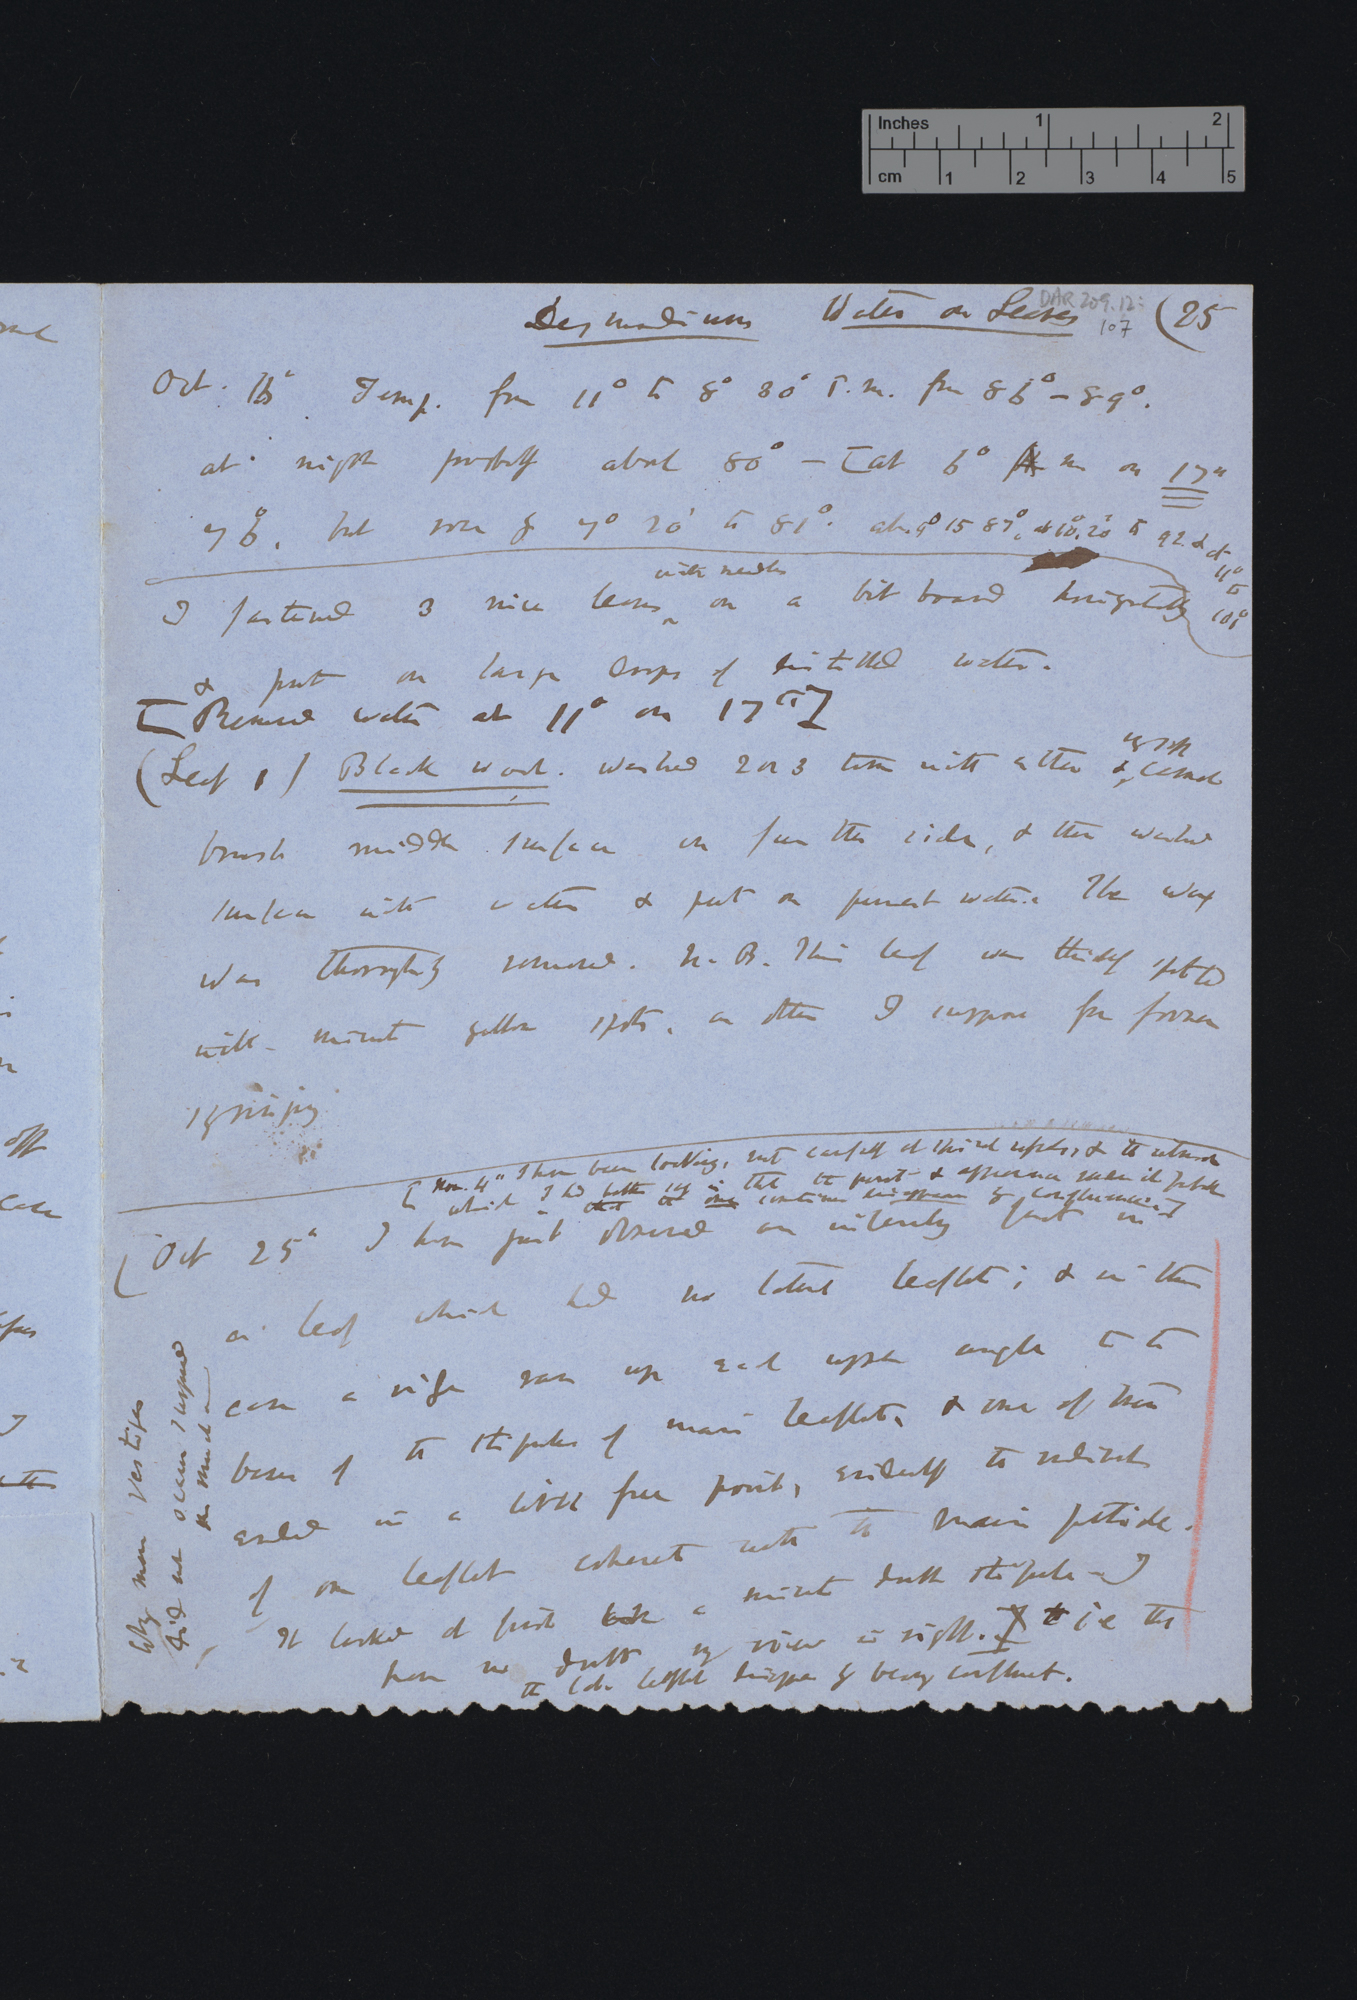 Desmodium Water on Leaves (25
DAR 209.12:
107
Oct. 16° Temp. from 11° to 8° 30' P.m. from 86° – 89°.
at night probably about 80° – [at 6° m on 17th
76°. but rose by 7° 20' to 81°. at 9° 15 87°, at 10°. 20' to 92. & at
11°
to
101°
with needles
I fastened 3 nice leaves on a bit board horizontally
& put on large drops of distilled water.
[Removed water at 11° on 17th]
(Leaf 1) Black wool. washed 2 or 3 times with ether & camel
brush middle surface on further side, & then washed
surface with water & put on purest water. The wax
was thoroughly removed. N.B. This leaf was thickly spotted
with minute yellow spots, as others I suppose from former
syringing
[Nov. 4" I have been looking, not carefully at third
which I had
(Oct 25" I have just observed an interesting fact in
a leaf which had no lateral leaflets; & in this
case a ridge ran up each upper angle to the
base of the stipules of main leaflet, & one of these
ended in a little free point, evidently the rudiment
of one leaflet coherent with the main petiole.
It looked at first like a minute stipule – I
have no doubt my view is right. i.e the
the lateral leaflet disappear by being confluent.
Why more vestiges
did not occur I suppose
Inches 1 2
cm 1 2 3 4 5